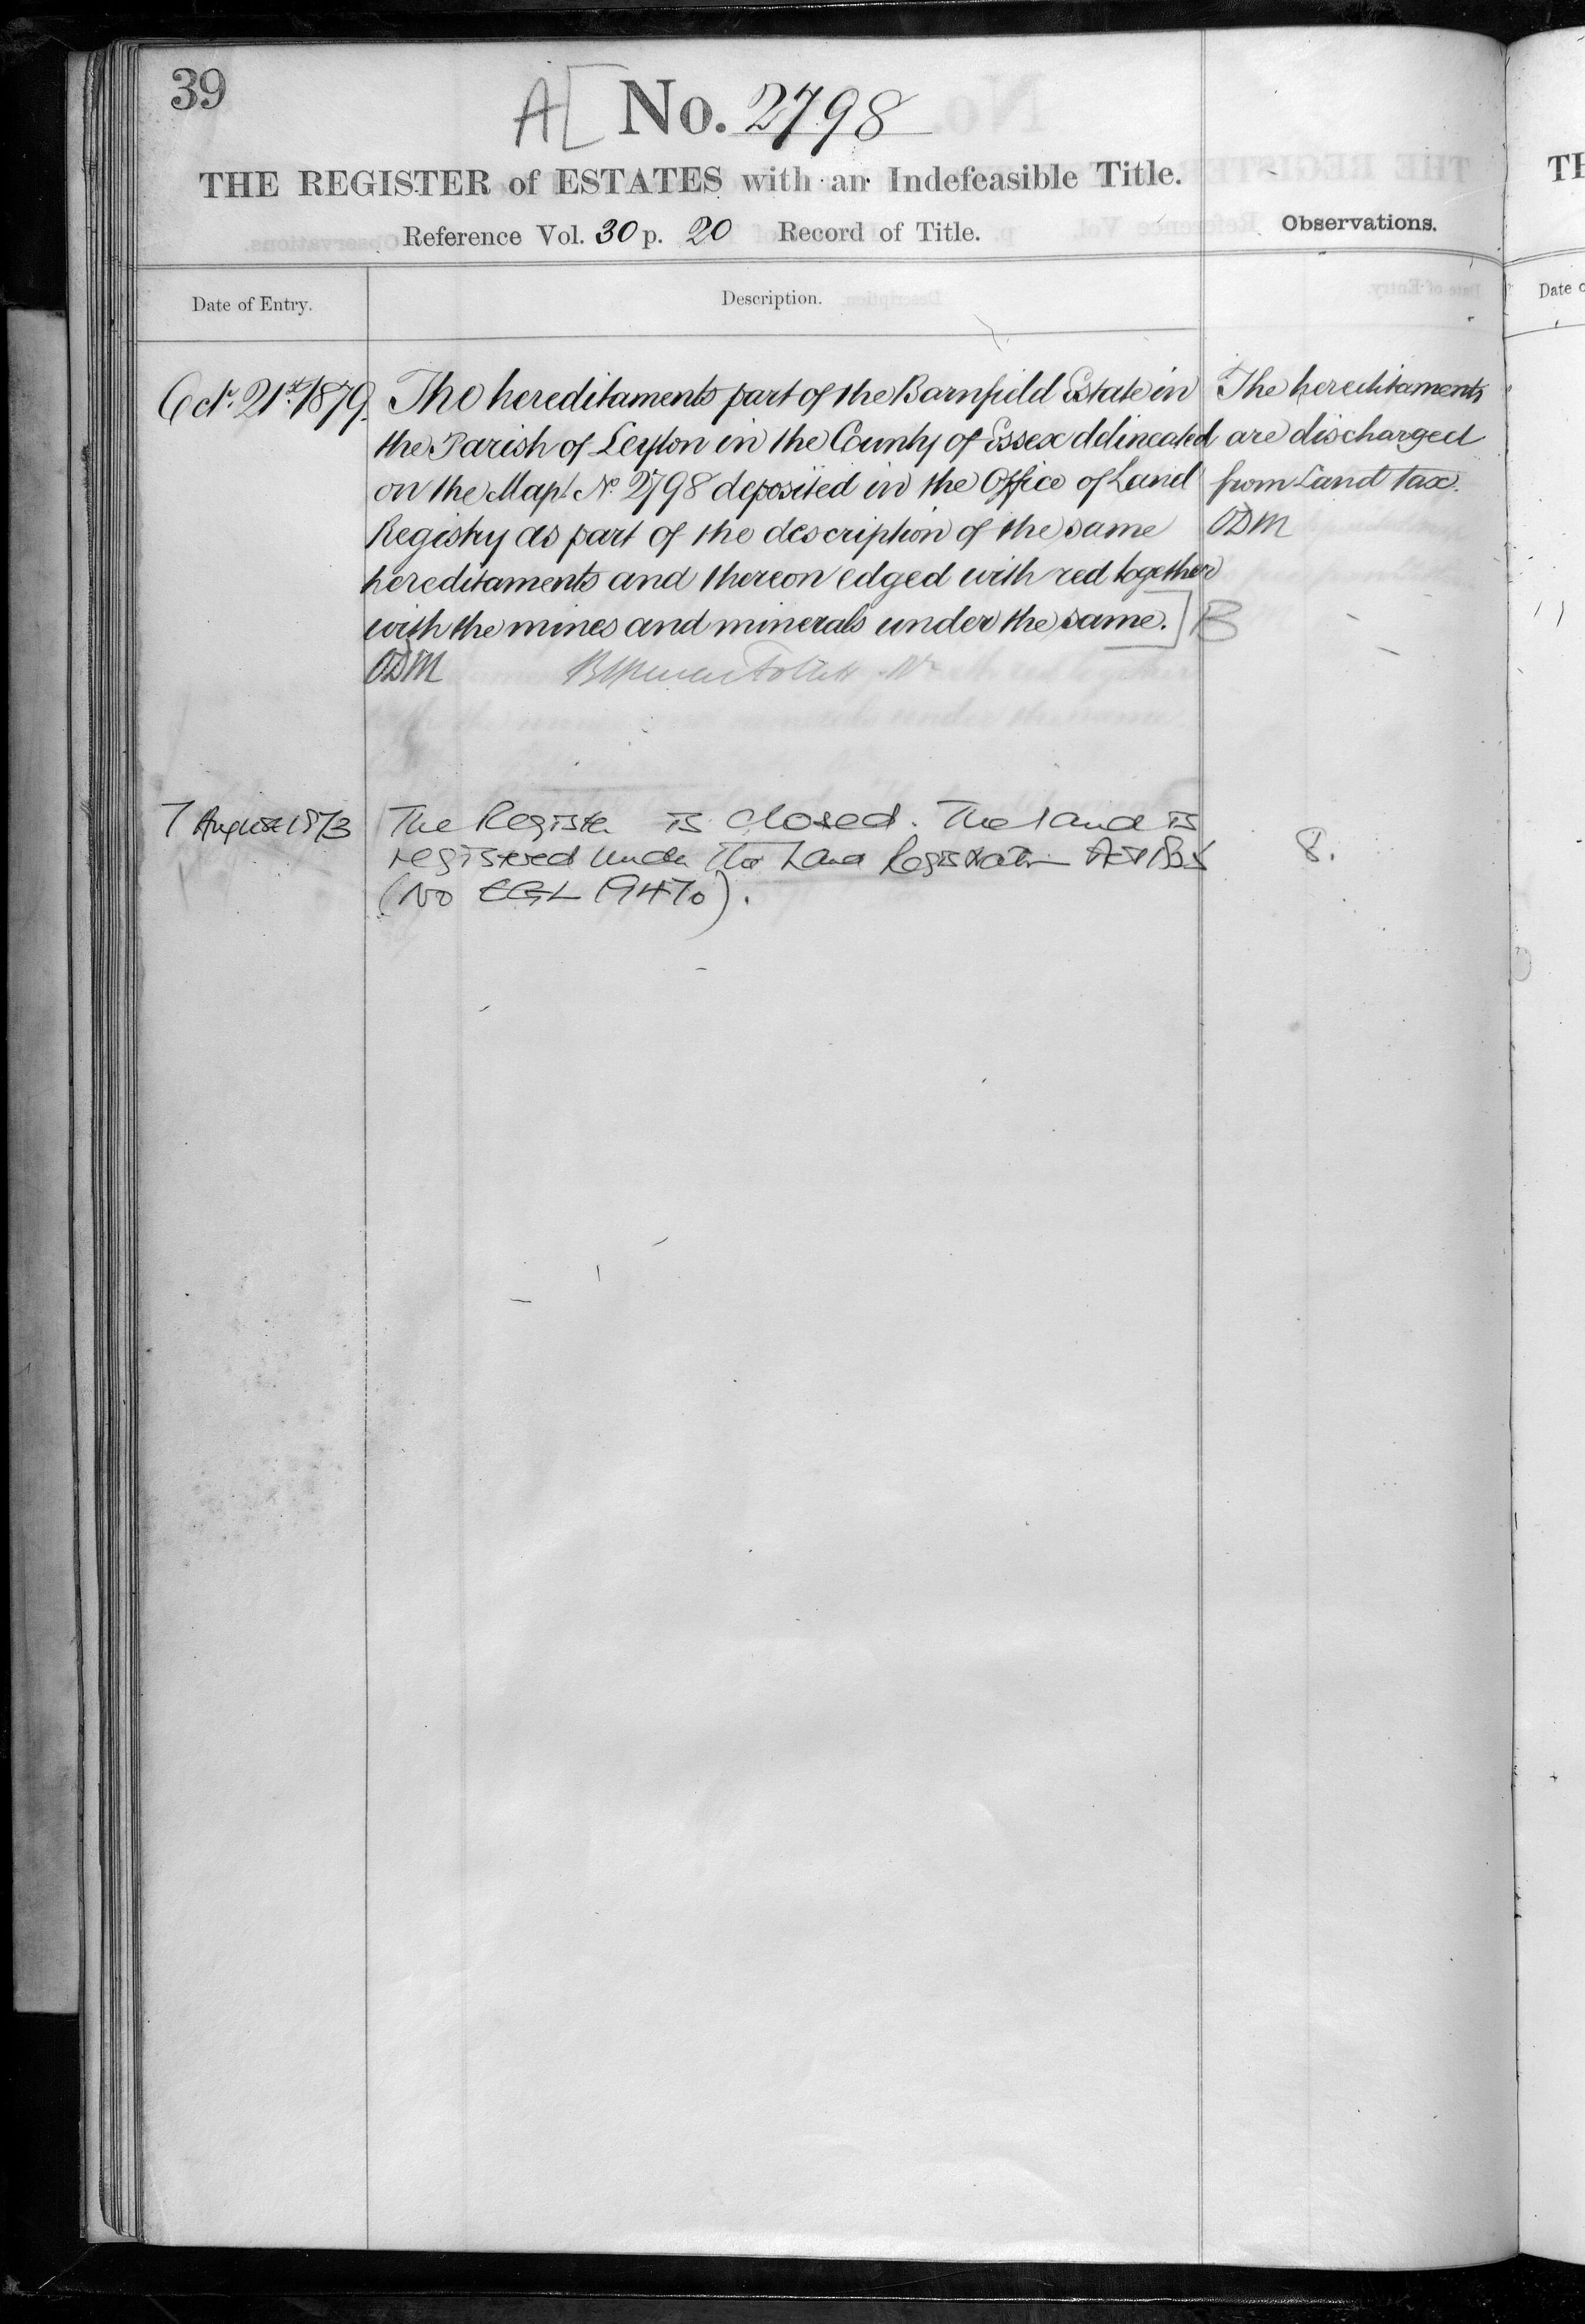 39
A[ No. 2798
THE REGISTER of ESTATES with an Indefeasible Title.
Reference Vol. 30 p. 20 Record of Title.
Observations.
Date of Entry.
Description.
Oct. 21st 1879.
The hereditaments part of the Barnfield Estate in
the Parish of Leyton in the County of Essex delineated
on the Map No. 2798 deposited in the Office of Land
Registry as part of the description of the same
hereditaments and thereon edged with red together
with the mines and minerals under the same.] B
ODM
The hereditaments
are discharged
from Land tax.
ODM
7 August 1973
The Register is closed. The land is
registered under the Land Registration Act
(No EGL 19470).
8.
TH
Date o